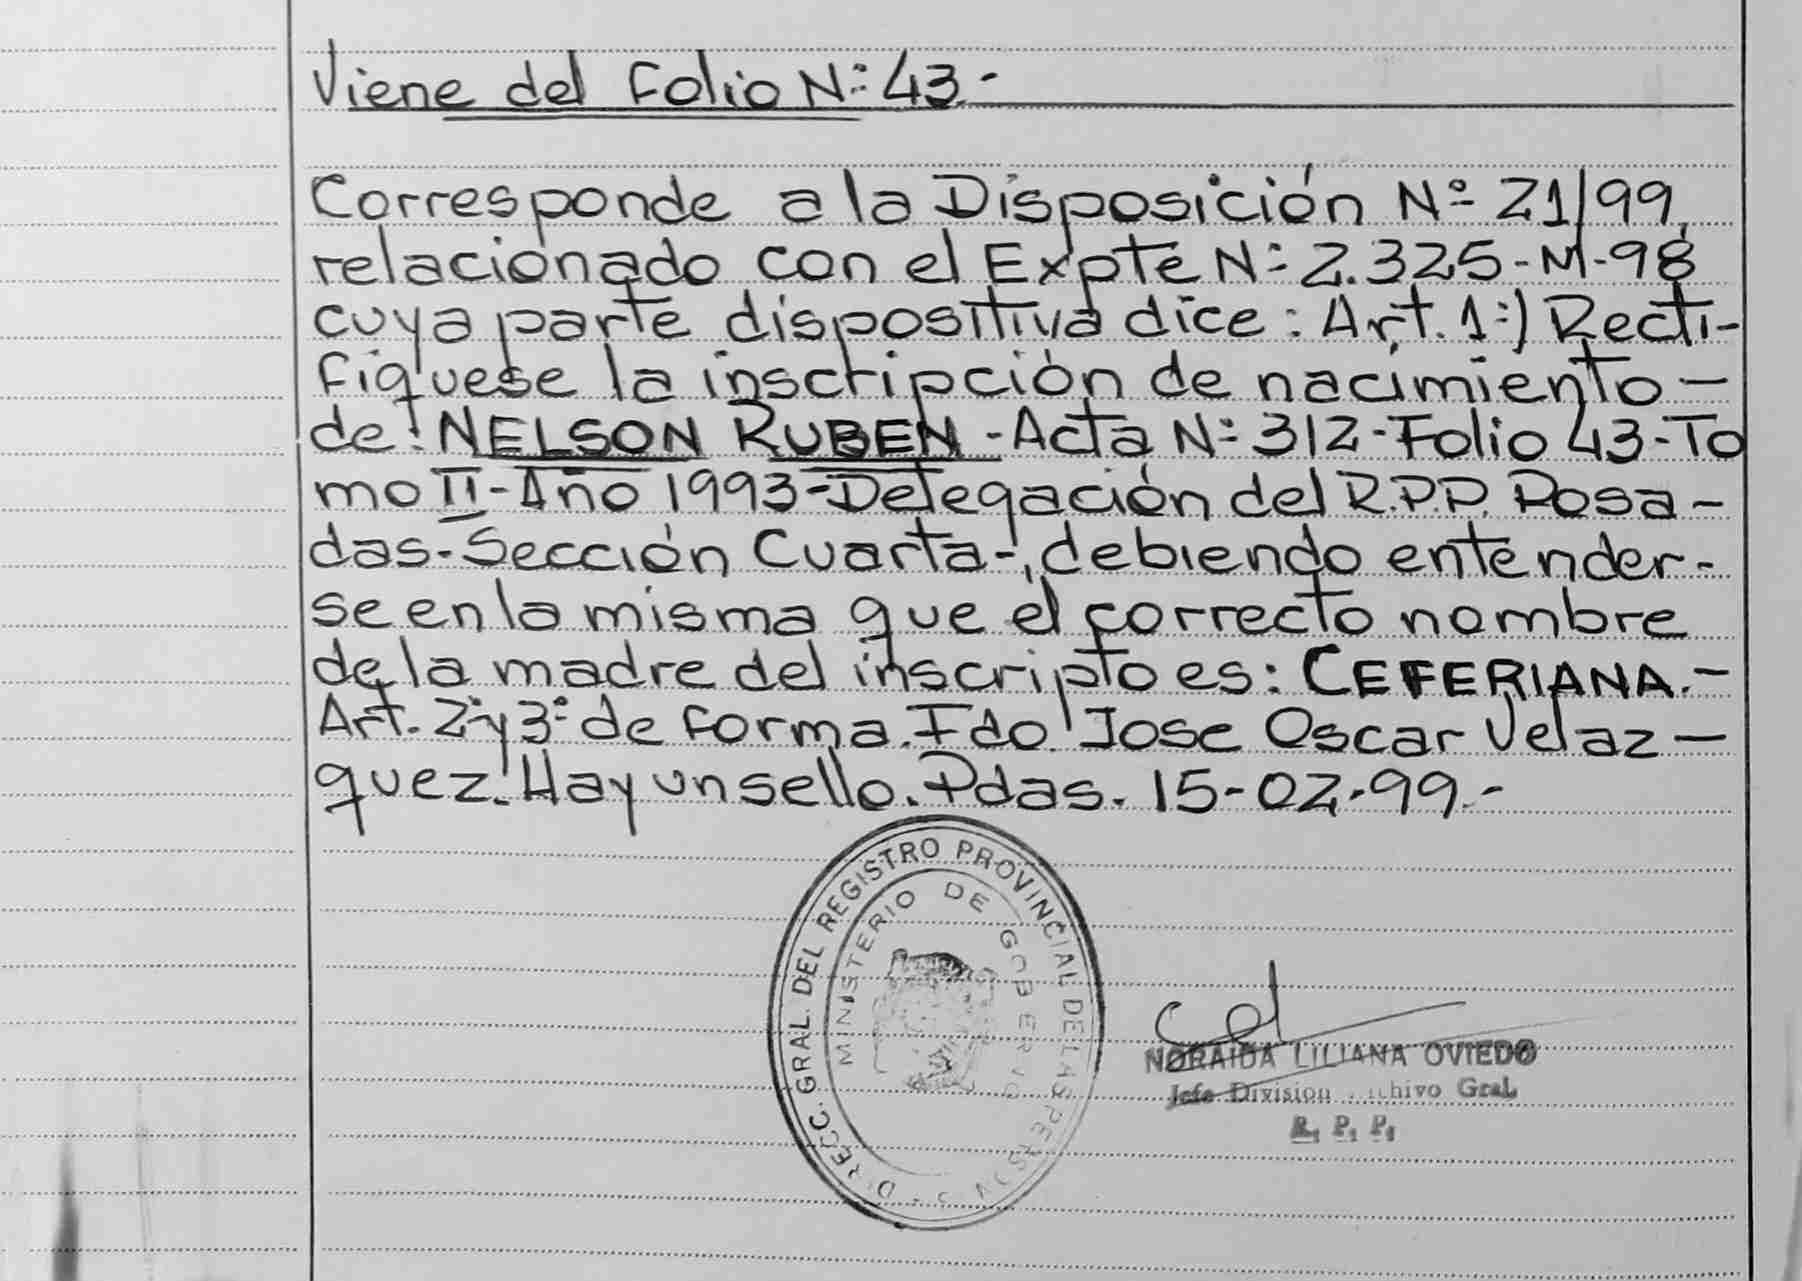 Viene del Folio Nº 43.-
Corresponde a la Disposición Nº 21/99,
relacionado con el Expte Nº 2.325-M-98
cuya parte dispositiva dice: Art. 1º) Recti-
fíquese la inscripción de nacimiento-
de: NELSON RUBEN - Acta Nº 312-Folio 43-To
mo II-Año 1993-Delegación del R.P.P. Posa-
das-Sección Cuarta-, debiendo entender-
se en la misma que el correcto nombre
de la madre del inscripto es: CEFERIANA.-
Art. 2º y 3º de forma. Fdo. Jose Oscar Velaz-
quez. Hay un sello. Pdas. 15-02-99.-
DIRECC. GRAL. DEL REGISTRO PROVINCIAL DE LAS PERSONAS
MINISTERIO DE GOBIERNO
NORAIDA LILIANA OVIEDO
Jefe Division Archivo Gral.
R. P. P.